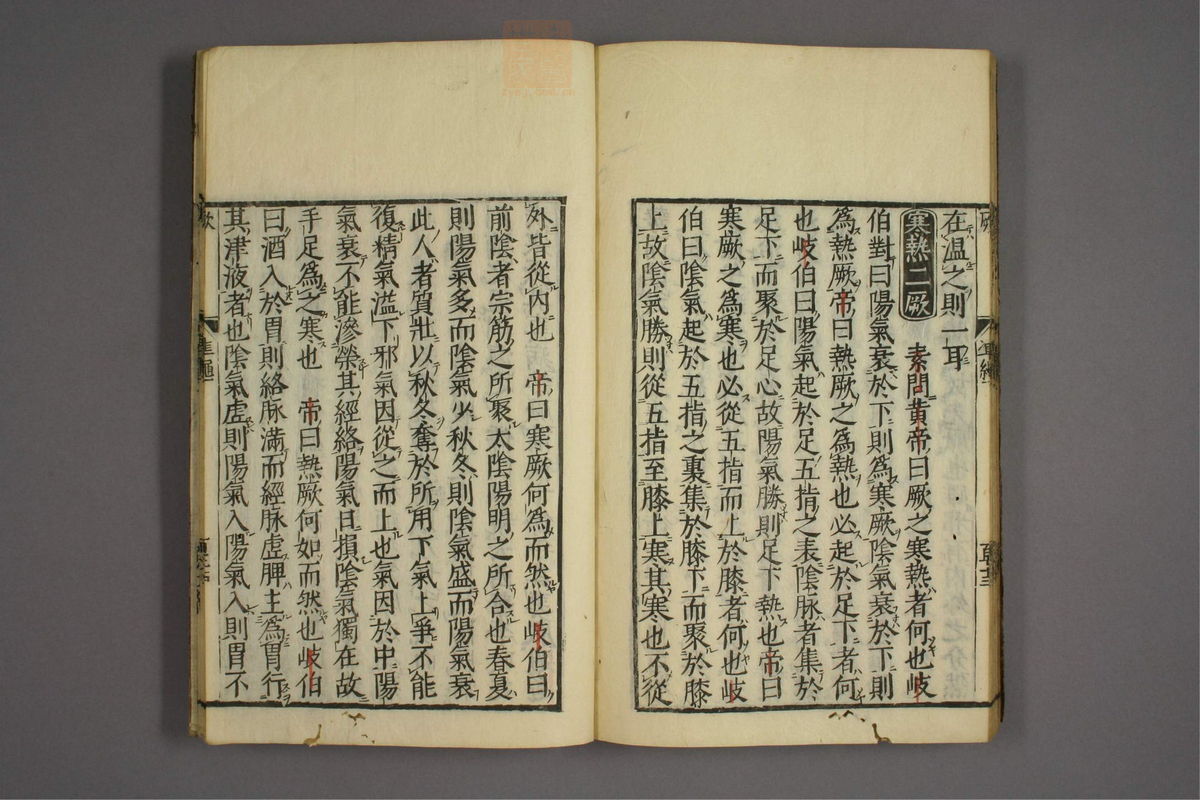 在温之則一耳
寒熱二厥 素問黄帝曰厥之寒熱者何也歧
伯對曰陽氣衰於下則為寒厥陰氣衰於下則
為熱厥帝曰熱厥之為熱也必起於足下者何
也歧伯曰陽氣起於足五指之表陰脉者集於
足下而聚於足心故陽氣勝則足下熱也帝曰
寒厥之為寒也必從五指而上於膝者何也歧
伯曰陰氣起於五指之裏集於膝下而聚於膝
上故陰氣勝則從五指至膝上寒其寒也不從
外皆從内也 帝曰寒厥何為而然也歧伯曰
前陰者宗筋之所聚太陰陽明之所合也春夏
則陽氣多而陰氣少秋冬則陰氣盛而陽氣衰
此人者質壯以秋冬奪於所用下氣上爭不能
復精氣溢下邪氣因從之而上也氣因於中陽
氣衰不能滲榮其經絡陽氣日損陰氣獨在故
手足為之寒也 帝曰熱厥何如而然也歧伯
曰酒入於胃則絡脉滿而經脉虚脾主為胃行
其津液者也陰氣虚則陽氣入陽氣入則胃不